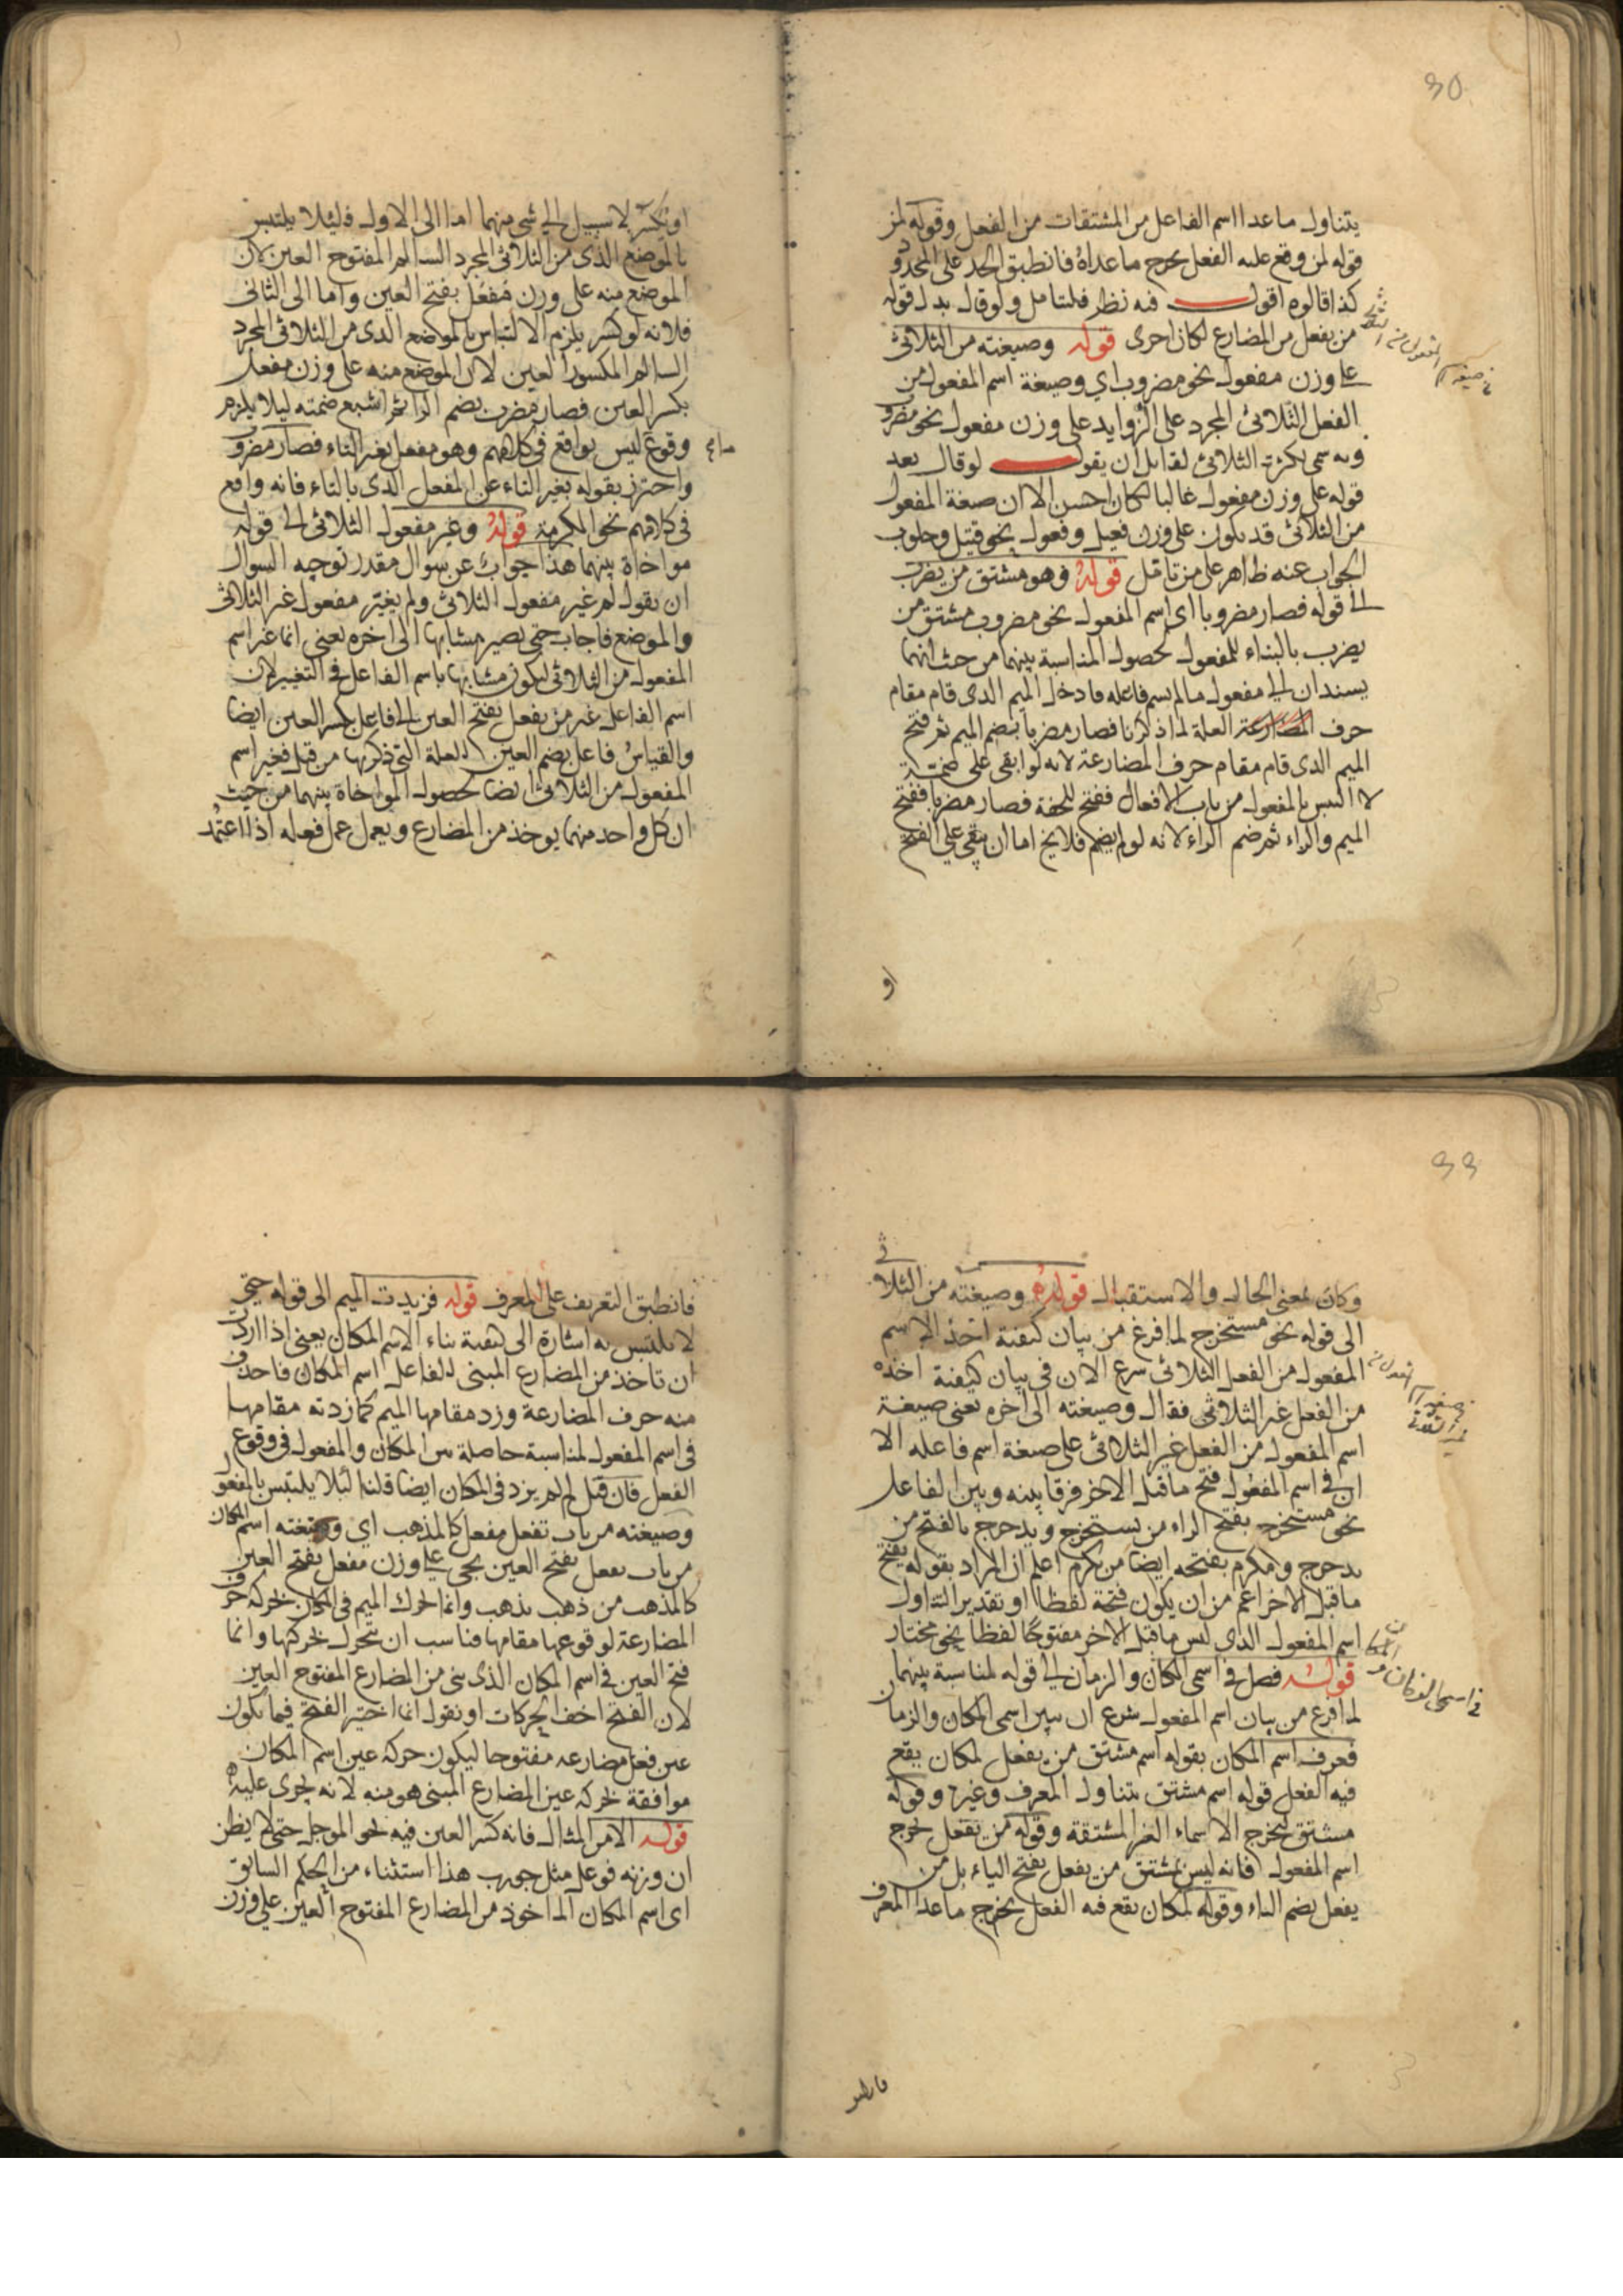 30
يتناول ما عدا اسم الفاعل من المشتقات من الفعل وقوله لمن
قوله لمن وقع عليه الفعل يخرج ما عداه فانطبق الحد على المحدود
كذا قالوه اقول فيه نظر فليتامل ولو قال بدل قوله
من يفعل من المضارع لكان احرى قوله وصيغته من الثلاثي
على وزن مفعول نحو مضروب اي وصيغة اسم المفعول من
الفعل الثلاثي المجرد على الزوايد على وزن مفعول نحو مضروب
لقايل ان يقول لو قال بعد
قوله على وزن مفعول غالبا لكان احسن الا ان صيغة المفعول
من الثلاثي قد يكون على وزن فعيل وفعول نحو قتيل وحلوب
الجواب عنه ظاهر على من تامل قوله وهو مشتق من يضرب
الى قوله فصار مضروبا اي اسم المفعول نحو مضروب مشتق من
يضرب بالبناء للمفعول لحصول المناسبة بينهما من حيث انهما
يسندان الى مفعول ما لم يسم فاعله فادخل الميم الذي قام مقام
حرف المضارعة العلة لما ذكرنا فصار مضربا بضم الميم ثم فتح
الميم الذي قام مقام حرف المضارعة لانه لو ابقى على ضمته
لا التبس بالمفعول من باب الافعال ففتح للخفة فصار مضربا بفتح
الميم والراء ثم ضم الراء لانه لو لم يضم فلا يخ اما ان يبقى على الفتح
او
او يكسر لا سبيل الى شي منهما اما الى الاول فليلا يلتبس
بالموضع الذي من الثلاثي المجرد السالم المفتوح العين لان
الموضع منه على وزن مفعل بفتح العين واما الى الثاني
فلانه لو كسر يلزم الالتباس بالموضع الذي من الثلاثي المجرد
السالم المكسور العين لان الموضع منه على وزن مفعل
بكسر العين فصار مضرب بضم الراء ثم اشبع ضمته ليلا يلزم
وقوع ليس بواقع في كلامهم وهو مفعل بغير التاء فصار مضروب
واحترز بقوله بغير التاء عن المفعل الذي بالتاء فانه واقع
في كلامهم نحو المكرمة قوله وغير مفعول الثلاثي الى قوله
مواخاة بينهما هذا جواب عن سوال مقدر توجيه السوال
ان يقول لم غير مفعول الثلاثي ولم يغير مفعول غير الثلاثي
والموضع فاجاب حتى يصير مشابها الى اخره يعني انما غير اسم
المفعول من الثلاثي ليكون مشابها باسم الفاعل في التغيير لان
اسم الفاعل غير من يفعل بفتح العين الى فاعل بكسر العين ايضا
والقياس فاعل بضم العين للعلة التي ذكرها من قبل فغير اسم
المفعول من الثلاثي ايضا لحصول المواخاة بينهما من حيث
ان كل واحد منهما يوخذ من المضارع ويعمل عمل فعله اذا اعتمد
وكان بمعنى الحال والاستقبال قوله وصيغته من الثلاثي
الى قوله نحو مستخرج لما فرغ من بيان كيفية اخذ الاسم
المفعول من الفعل الثلاثي شرع الان في بيان كيفية اخذه
من الفعل غير الثلاثي فقال وصيغته الى اخره يعني صيغة
اسم المفعول من الفعل غير الثلاثي على صيغة اسم فاعله الا
ان في اسم المفعول فتح ما قبل الاخر فرقا بينه وبين الفاعل
نحو مستخرج بفتح الراء من يستخرج ويدحرج بالفتح من
يدحرج ومكرم بفتحه ايضا من يكرم اعلم ان المراد بقوله بفتح
ما قبل الاخر اعم من ان يكون فتحة لفظا او تقدير التناول
اسم المفعول الذي ليس ما قبل الاخر مفتوحا لفظا نحو مختار
قوله فصل في اسمي المكان والزمان الى قوله لمناسبة بينهما
لما فرغ من بيان اسم المفعول شرع ان يبين اسمي المكان والزمان
فعرف اسم المكان بقوله اسم مشتق من يفعل لمكان يقع
فيه الفعل قوله اسم مشتق يتناول المعرف وغيره وقوله
مشتق يخرج الاسماء الغير المشتقة وقوله من يفعل يخرج
اسم المفعول فانه ليس بمشتق من يفعل بفتح الياء بل من
يفعل بضم الياء وقوله لمكان يقع فيه الفعل يخرج ما عدا المعرف
فانطبق
فانطبق التعريف على المعرف قوله فزيدت الميم الى قوله حتى
لا يلتبس به اشارة الى كيفية بناء الاسم المكان يعني اذا اردت
ان تاخذ من المضارع المبني للفاعل اسم المكان فاحذف
منه حرف المضارعة وزد مقامها الميم كما زدته مقامها
في اسم المفعول لمناسبة حاصلة بين المكان والمفعول في وقوع
الفعل فان قيل لم لم يزد في المكان ايضا قلنا لئلا يلتبس بالمفعول
وصيغته من باب تفعل مفعل كالمذهب اي وصيغته اسم المكان
من باب يفعل بفتح العين يجي على وزن مفعل بفتح العين
كالمذهب من ذهب يذهب وانما الحرك الميم في المكان بحركة حرف
المضارعة لوقوعها مقامها فناسب ان تحرك بحركتها وانما
فتح العين في اسم المكان الذي بني من المضارع المفتوح العين
لان الفتح اخف الحركات او نقول انما اختير الفتح فيما يكون
عين فعل مضارعه مفتوحا ليكون حركة عين اسم المكان
موافقة لحركة عين المضارع المبني هو منه لانه يجري عليه
قوله الا من المثال فانه كسر العين فيه نحو الموجل حتى لا يظن
ان وزنه فوعل مثل جورب هذا استثناء من الحكم السابق
اي اسم المكان الماخوذ من المضارع المفتوح العين على وزن